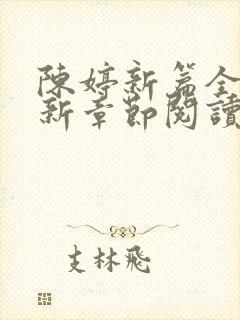 陳婷新篇全
新章節閱讀
支林飛